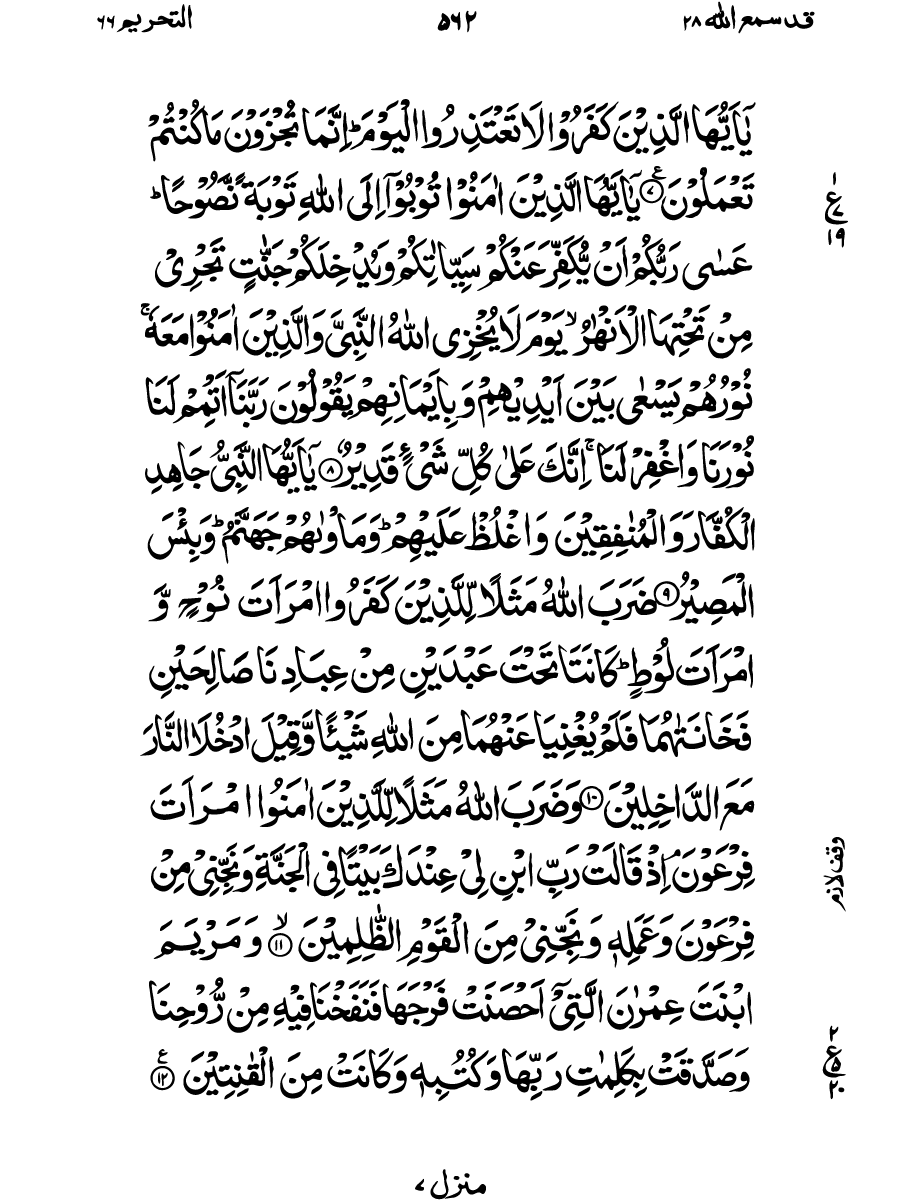 قد سمع الله ٢٨
٥٦٢
التحريم ٦٦
يٰۤاَيُّهَا الَّذِيْنَ كَفَرُوْا لَا تَعْتَذِرُوا الْيَوْمَ ؕ اِنَّمَا تُجْزَوْنَ مَا كُنْتُمْ
تَعْمَلُوْنَ ﴿٧﴾ع يٰۤاَيُّهَا الَّذِيْنَ اٰمَنُوْا تُوْبُوْۤا اِلَى اللّٰهِ تَوْبَةً نَّصُوْحًا ؕ
١
ع
٧
١٩
عَسٰى رَبُّكُمْ اَنْ يُّكَفِّرَ عَنْكُمْ سَيِّاٰتِكُمْ وَيُدْخِلَكُمْ جَنّٰتٍ تَجْرِيْ
مِنْ تَحْتِهَا الْاَنْهٰرُ ۙ يَوْمَ لَا يُخْزِى اللّٰهُ النَّبِيَّ وَالَّذِيْنَ اٰمَنُوْا مَعَهٗ ۚ
نُوْرُهُمْ يَسْعٰى بَيْنَ اَيْدِيْهِمْ وَبِاَيْمَانِهِمْ يَقُوْلُوْنَ رَبَّنَاۤ اَتْمِمْ لَنَا
نُوْرَنَا وَاغْفِرْ لَنَا ۚ اِنَّكَ عَلٰى كُلِّ شَيْءٍ قَدِيْرٌ ﴿٨﴾ يٰۤاَيُّهَا النَّبِيُّ جَاهِدِ
الْكُفَّارَ وَالْمُنٰفِقِيْنَ وَاغْلُظْ عَلَيْهِمْ ؕ وَمَاْوٰىهُمْ جَهَنَّمُ ؕ وَبِئْسَ
الْمَصِيْرُ ﴿٩﴾ ضَرَبَ اللّٰهُ مَثَلًا لِّلَّذِيْنَ كَفَرُوا امْرَاَتَ نُوْحٍ وَّ
امْرَاَتَ لُوْطٍ ؕ كَانَتَا تَحْتَ عَبْدَيْنِ مِنْ عِبَادِنَا صَالِحَيْنِ
فَخَانَتٰهُمَا فَلَمْ يُغْنِيَا عَنْهُمَا مِنَ اللّٰهِ شَيْـًٔا وَّقِيْلَ ادْخُلَا النَّارَ
مَعَ الدَّاخِلِيْنَ ﴿١٠﴾ وَضَرَبَ اللّٰهُ مَثَلًا لِّلَّذِيْنَ اٰمَنُوا امْرَاَتَ
فِرْعَوْنَ ۘ اِذْ قَالَتْ رَبِّ ابْنِ لِيْ عِنْدَكَ بَيْتًا فِى الْجَنَّةِ وَنَجِّنِيْ مِنْ
وقف لازم
فِرْعَوْنَ وَعَمَلِهٖ وَنَجِّنِيْ مِنَ الْقَوْمِ الظّٰلِمِيْنَ ﴿١١﴾ۙ وَمَرْيَمَ
ابْنَتَ عِمْرٰنَ الَّتِيْۤ اَحْصَنَتْ فَرْجَهَا فَنَفَخْنَا فِيْهِ مِنْ رُّوْحِنَا
وَصَدَّقَتْ بِكَلِمٰتِ رَبِّهَا وَكُتُبِهٖ وَكَانَتْ مِنَ الْقٰنِتِيْنَ ﴿١٢﴾ع
٢
ع
٥
٢٠
منزل ٧